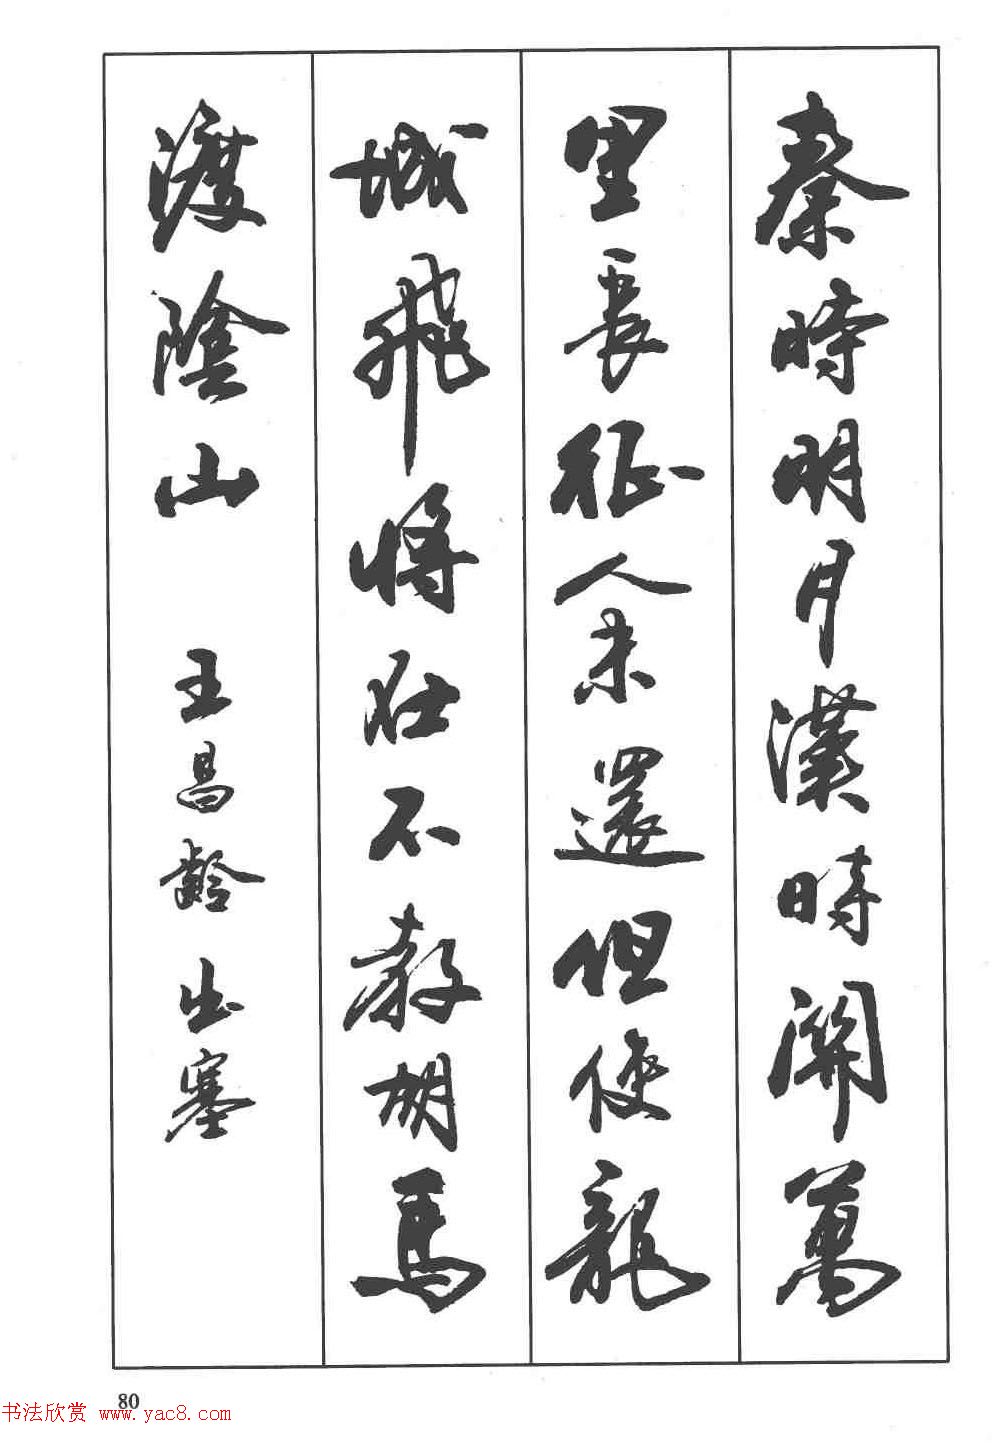 秦時明月漢時關萬
里長征人未還但使龍
城飛將在不教胡馬
渡陰山 王昌齡 出塞
80
书法欣赏 www.yac8.com